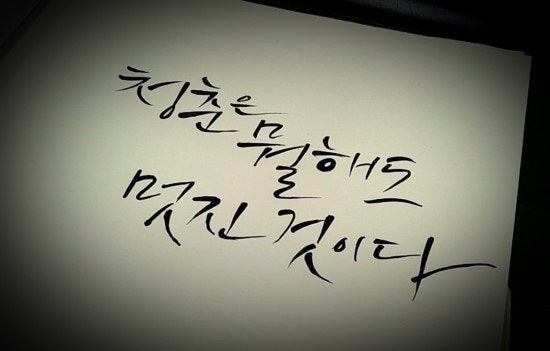 청춘은
뭘해도
멋진 것이다